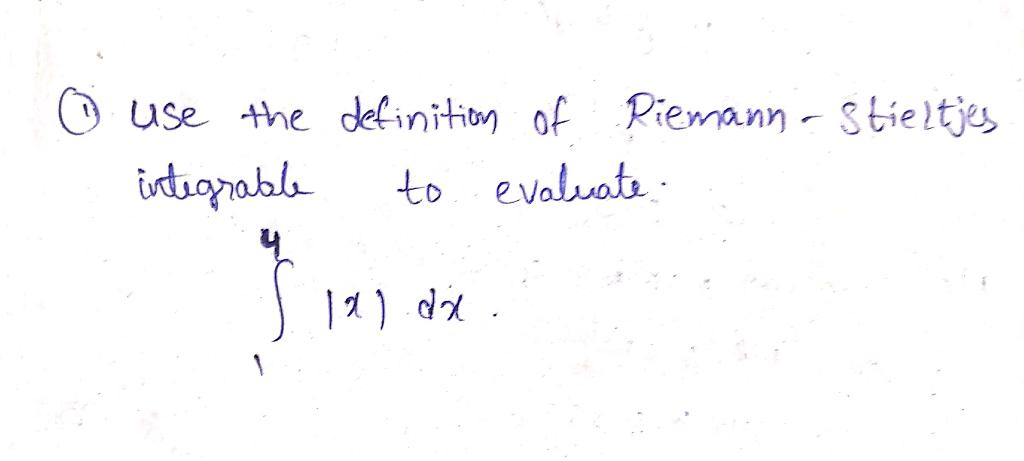 ① use the definition of Riemann - Stieltjes
integrable to evaluate.
4
∫ |x| dx .
1